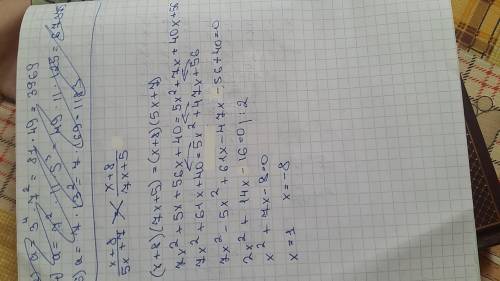 a = 3⁴ · 7² = 81 · 49 = 3969
a = 7² · 11 · 5³ = 49 · 11 · 125 =
a = 7 · 13² = 7 · 169 = 1183
x+8 / 5x+7 = x+8 / 7x+5
(x+8)(7x+5)=(x+8)(5x+7)
7x²+5x+56x+40=5x²+7x+40x+56
7x²+61x+40=5x²+47x+56
7x²-5x²+61x-47x-56+40=0
2x²+14x-16=0 |:2
x²+7x-8=0
x=1 x=-8